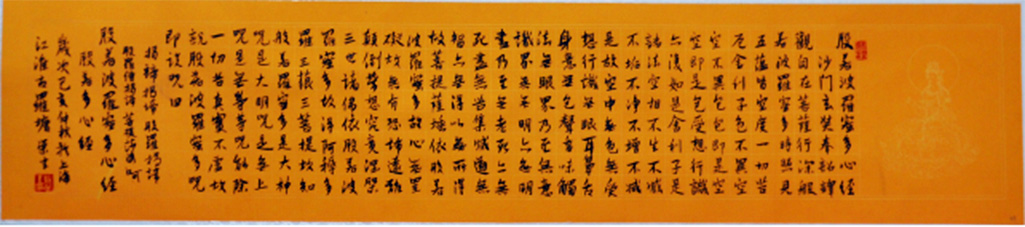 般若波羅蜜多心經
沙門玄奘奉詔譯
觀自在菩薩行深般
若波羅蜜多時照見
五蘊皆空度一切苦
厄舍利子色不異空
空不異色色即是空
空即是色受想行識
亦復如是舍利子是
諸法空相不生不滅
不垢不净不增不減
是故空中無色無受
想行識無眼耳鼻舌
身意無色聲香味觸
法無眼界乃至無意
識界無無明亦無無明
盡乃至無老死亦無老
死盡無苦集滅道無
智亦無得以無所得
故菩提薩埵依般若
波羅蜜多故心無罣
礙故無有恐怖遠離
顛倒夢想究竟涅槃
三世諸佛依般若波
羅蜜多故得阿耨多
羅三藐三菩提故知
般若羅蜜多是大神
咒是大明咒是無上
咒是無等等咒能除
一切苦真實不虛故
說般若波羅蜜多咒
即說咒曰
揭諦揭諦般羅揭諦
般羅僧揭諦菩提莎婆訶
般若波羅蜜多心經
般若多心經
歲次己亥仲秋於上海
江淮古羅塘